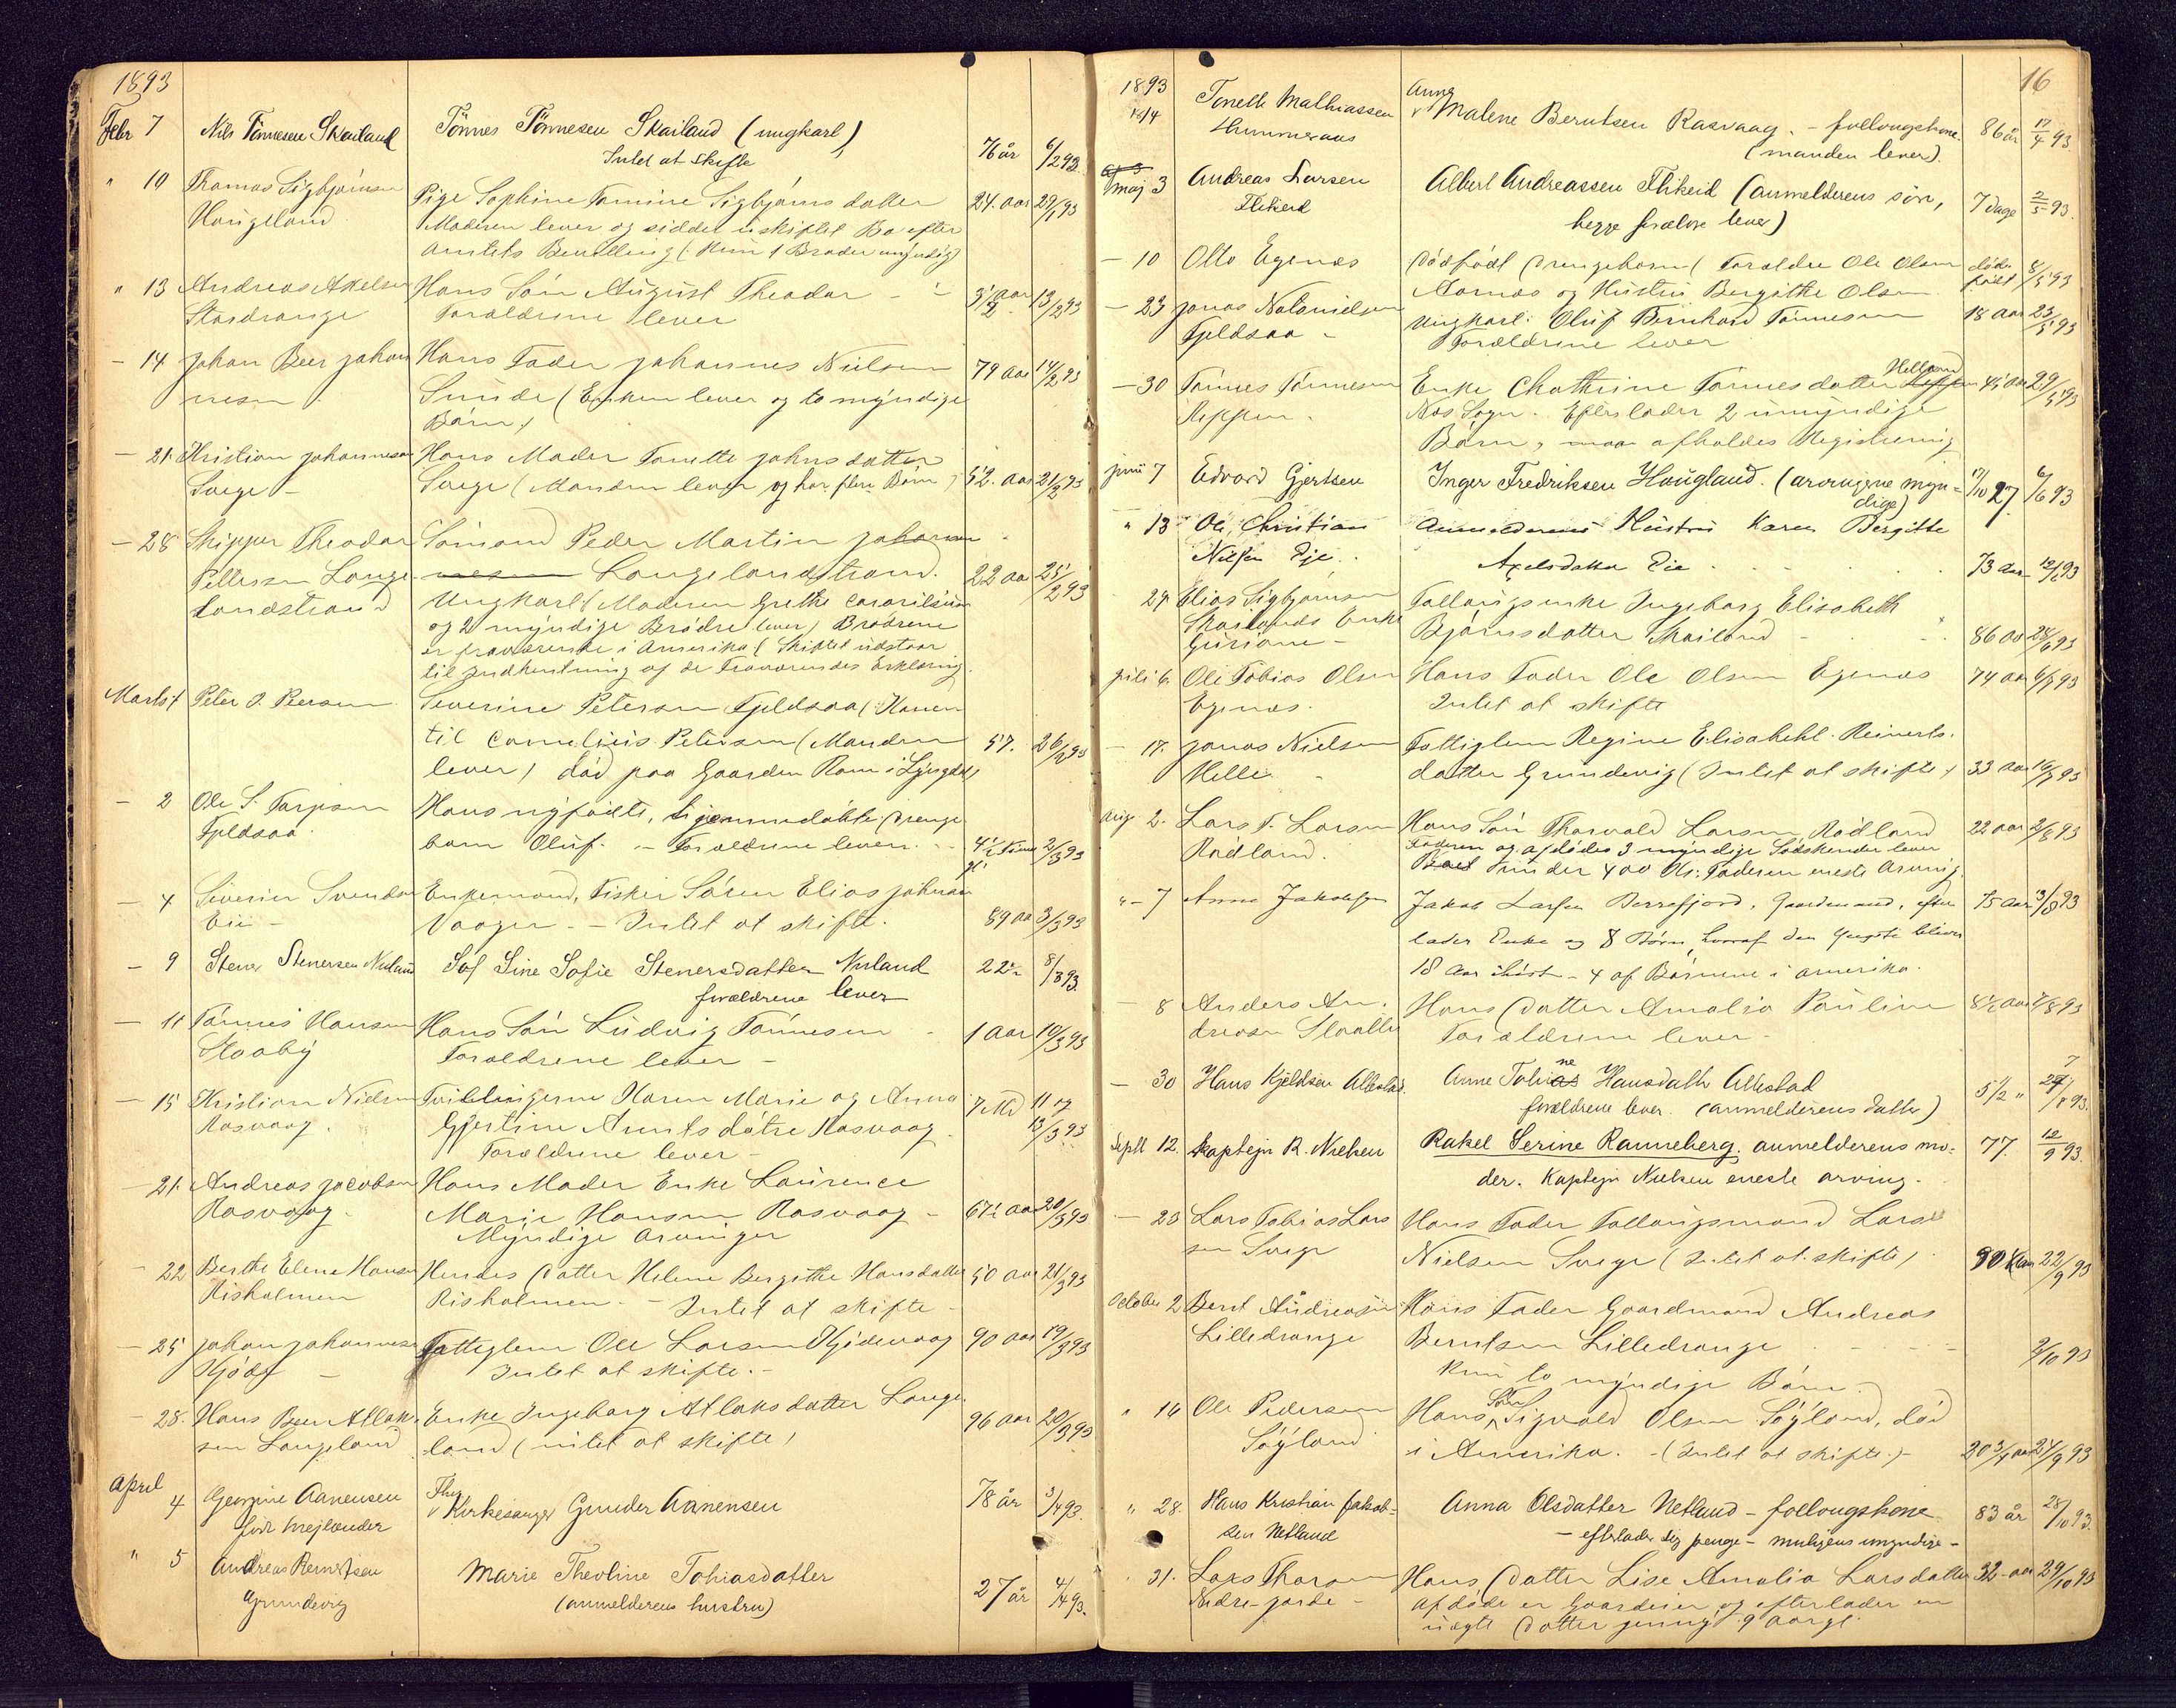 1893
Febr 7 Nils Tönnesen Skailand Tönnes Tönnesen Skailand (ungkarl) 76 år 6/2 93
Intet at skifte
" 10 Thomas Sigbjörnsen Pige Sophine Tomine Sigbjörnsdatter 24. aar 29/1 93
Haugeland Moderen lever og sidder i uskiftet Bo efter
Amtets Bevilling (: Kun 1 Broder myndig)
" 13 Andreas Axelsen Hans Sön August Theodor - 3 1/2 aar 13/2 93
Stordrange Forældrene lever
- 14 Johan Beer Johan Hans Fader Johannes Nielsen 79 aar 14/2 93
nesen Sunde (Enken lever og to myndige
Börn)
- 21. Kristian Johannesen Hans Moder Tonette Johnsdatter
Svege - Svege (Manden lever og har flere Börn) 52. aar 21/2 93
- 28 Skipper Theodor Sömand Peder Martin Johan
Pettersen Lange- nesen Langelandstrand. 22 aar 25/2 93
landstrand Ungkarl (Moderen Grethe
og 2 myndige Brödre lever) Brödrene
er fraværende i Amerika (Skiftet udstaar
til Indhentning af de Fraværendes Erklæring
Marts 1 Peter J. Beersen Severine Petersen Fjeldsaa (Konen
til Cornelius Petersen (Manden 57. 26/2 93
lever) död paa Gaarden Rom i Lyngdal)
- 2 Ole S. Tarjesen Hans nyfödte, hjemmedöbte Drenge
Fjeldsaa. barn Oluf. - Forældrene lever. - 4 1/2 Time gl: 2/3 93
- 4 Severin Svendsen Enkemand, Fisker Sören Elias Johnsen
Eie - Vaagen - Intet at skifte. 89 aar 3/3 93
- 9 Stener Stenersen Nuland Sof Sine Sofie Stenersdatter Nuland 22 8/3 93.
forældrene lever
- 11 Tönnes Hansen Hans Sön Ludvig Tönnesen - 1 Aar 10/3 93
Slaaby Forældrene lever -
- 15 Kristian Nielsen Tvillingerne Karen Marie og Anna 7 Md 11 og
Rasvaag. Gjertine Arntsdötre Rasvaag 13/3 93
Forældrene lever -
- 21. Andreas Jacobsen Hans Moder Enke Laurence
Rasvaag - Marie Hansen Rasvaag - 67 1/2 Aar 20/3 93
Myndige Arvinger
- 22 Berthe Elene Hansen Hendes Datter Helene Bergitte Hansdatter 50 aar 21/3 93
Risholmen Risholmen - Intet at skifte -
- 25 Johan Johannesen Fattiglem Ole Larsen Kjödevaag 90 aar 19/3 93
Kjöde - Intet at skifte. -
- 28. Hans Beer Atlak- Enke Ingeborg Atlaksdatter Lange 96 aar 20/3 93
sen Langeland land (intet at skifte)
April
4 Georgine Aanensen Fhv Kirkesanger Gunder Aanensen 78 år 3/4 93.
född Mejlænder
" 5 Andreas Reinertsen Marie Theoline Tobiasdatter 27 år 4/4 93.
Grundevig (anmelderens hustru)
16
1893
14 Tonette Mathiassen Anna Malene Berntsen Rasvaag. - follougskone. 86 år 12/4 93.
Hummeraas (manden lever).
maj 3 Andreas Larsen Albert Andreassen Flikeid (anmelderens sön, 7 dage 2/5 93.
Flikeid begge forældre lever)
- 10 Otto Egenæs Dödfödt Drengebarn (Forældre Ole Olsen döds födt 8/5 93
Aarnæs og Hustru Bergitte Olsen
- 23 Jonas Natanielsen Ungkarl: Oluf Bernhard Tönnesen 18 aar 23/5 93
Fjeldsaa - Forældrene lever
- 30 Tönnes Tönnesen Enke Chathrine Tönnesdatter Helland 45 aar 29/5 93
Reppen. Næs Sogn. Efterlader 2 umyndige
Börn, maa afholdes Registrering
juni 7 Edvard Gjertsen Inger Fredriksen Hougland. (arvingene myn- 17/10 27. 6/6 93
dige)
" 13 Ole Christian Anmelderens Hustru Karen Bergitte
Nilsen Eje. Axelsdatter Eie 73 aar 12/6 93
29 Elias Sigbjörnsen Follougsenke Ingeborg Elisabeth
Skailands Enke Bjönsdatter Skailand - 86 aar 28/6 93
Guriane -
juli 6. Ole Tobias Olsen Hans Fader Ole Olsen Egenæs 74 aar 6/7 93
Egenæs. Intet at skifte
- 17. Jonas Nielsen Fattiglem Regine Elisabeht Reinerts.
Helle. datter Grundevig (Intet at skifte) 33 aar 16/7 93
Aug 2. Lars T. Larsen Hans Sön Thorvald Larsen Rödland 22 aar 2/8 93
Rödland. Faderen og afdödes 3 myndige Södskender lever
Boet under 400 Kr: Faderen eneste Arving.
" - 7 Anna Jakobsen Jakob Larsen Berrefjord, Gaardmand, efter 75 aar 3/8 93
lader Enke og 8 Börn, hvoraf den yngste bliver
18 Aar i höst - 4 af Börnene i Amerika.
- 8 Anders An- Hans Datter Amalia Pauline 8 1/2 aar 7/8 93
dreasen Slaatte Forældrene lever -
- 30 Hans Kjeldsen Allestad. Anne Tobine Hansdatter Allestad 5 1/2 " 27/8 93.
forældrene lever. (anmelderens datter)
Septb 12. Kaptejn R. Nielsen Rakel Serine Ranneberg. anmelderens mo- 77. 12/9 93.
der. Kaptejn Nielsen eneste arving.
- 23 Lars Tobias Lars Hans Fader Follougsmand Lars
sen Svege Nielsen Svege (Intet at skifte) 90 aar 22/9 93
October 2 Bernt Andreasen Hans Fader Gaardmand Andreas
Lilledrange Berntsen Lilledrange - - - 2/10 93
Kun to myndige Börn.
" 16 Ole Pedersen Hans Sön Sigvald Olsen Söyland, död
Söyland i Amerika. - (Intet at skifte.) - 20 3/4 aar 24/9 93
" 28. Hans Kristian Jakob- Anna Olsdatter Netland - follougskone. 83 år 28/10 93.
sen Netland - efterlader sig penge - muligens umyndige -
" 31. Lars Tharsen Hans Datter Lise Amalia Larsdatter 32 - aar 29/10 93
Nedre-Jorde - Afdöde er Gaardeier og efterlader en
uægte Datter Jenny 9 Aargl.